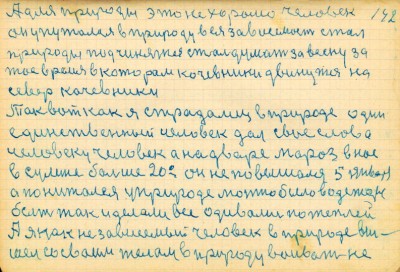 А для природы это не хорошо человек 142
он упутался в природу вся зависимост стал
природы подчинятся стал думат за весну за
тое время в котором кочевники двинутся на
север кочевники
Так вот как я страдалиц в природе один
единственный человек дал свое слова
человеку человек а на дваре мароз вное
в сумме болше 20г он не повышался 5 январ
а понижался у природе можно было в одежде
быт так и делали все одивали потеплей
А я как не зависимый человек в природе вы-
шел со своим телам в природу воиват не